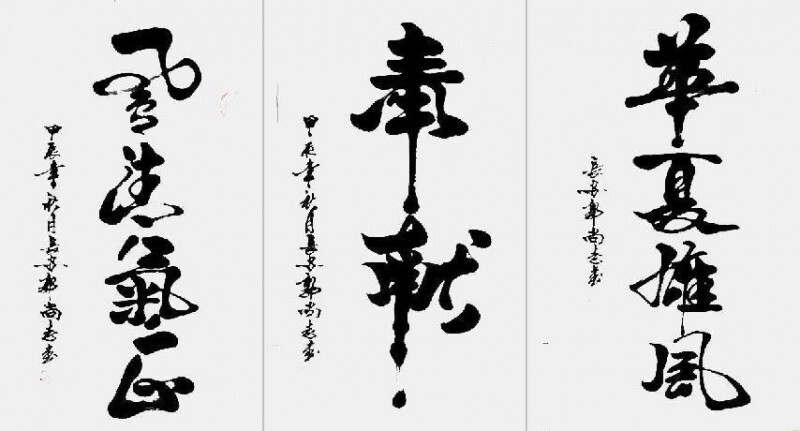 風清氣正
甲辰年秋月長安郭尚志書
奉献
甲辰年秋月長安郭尚志書
華夏雄風
長安郭尚志書